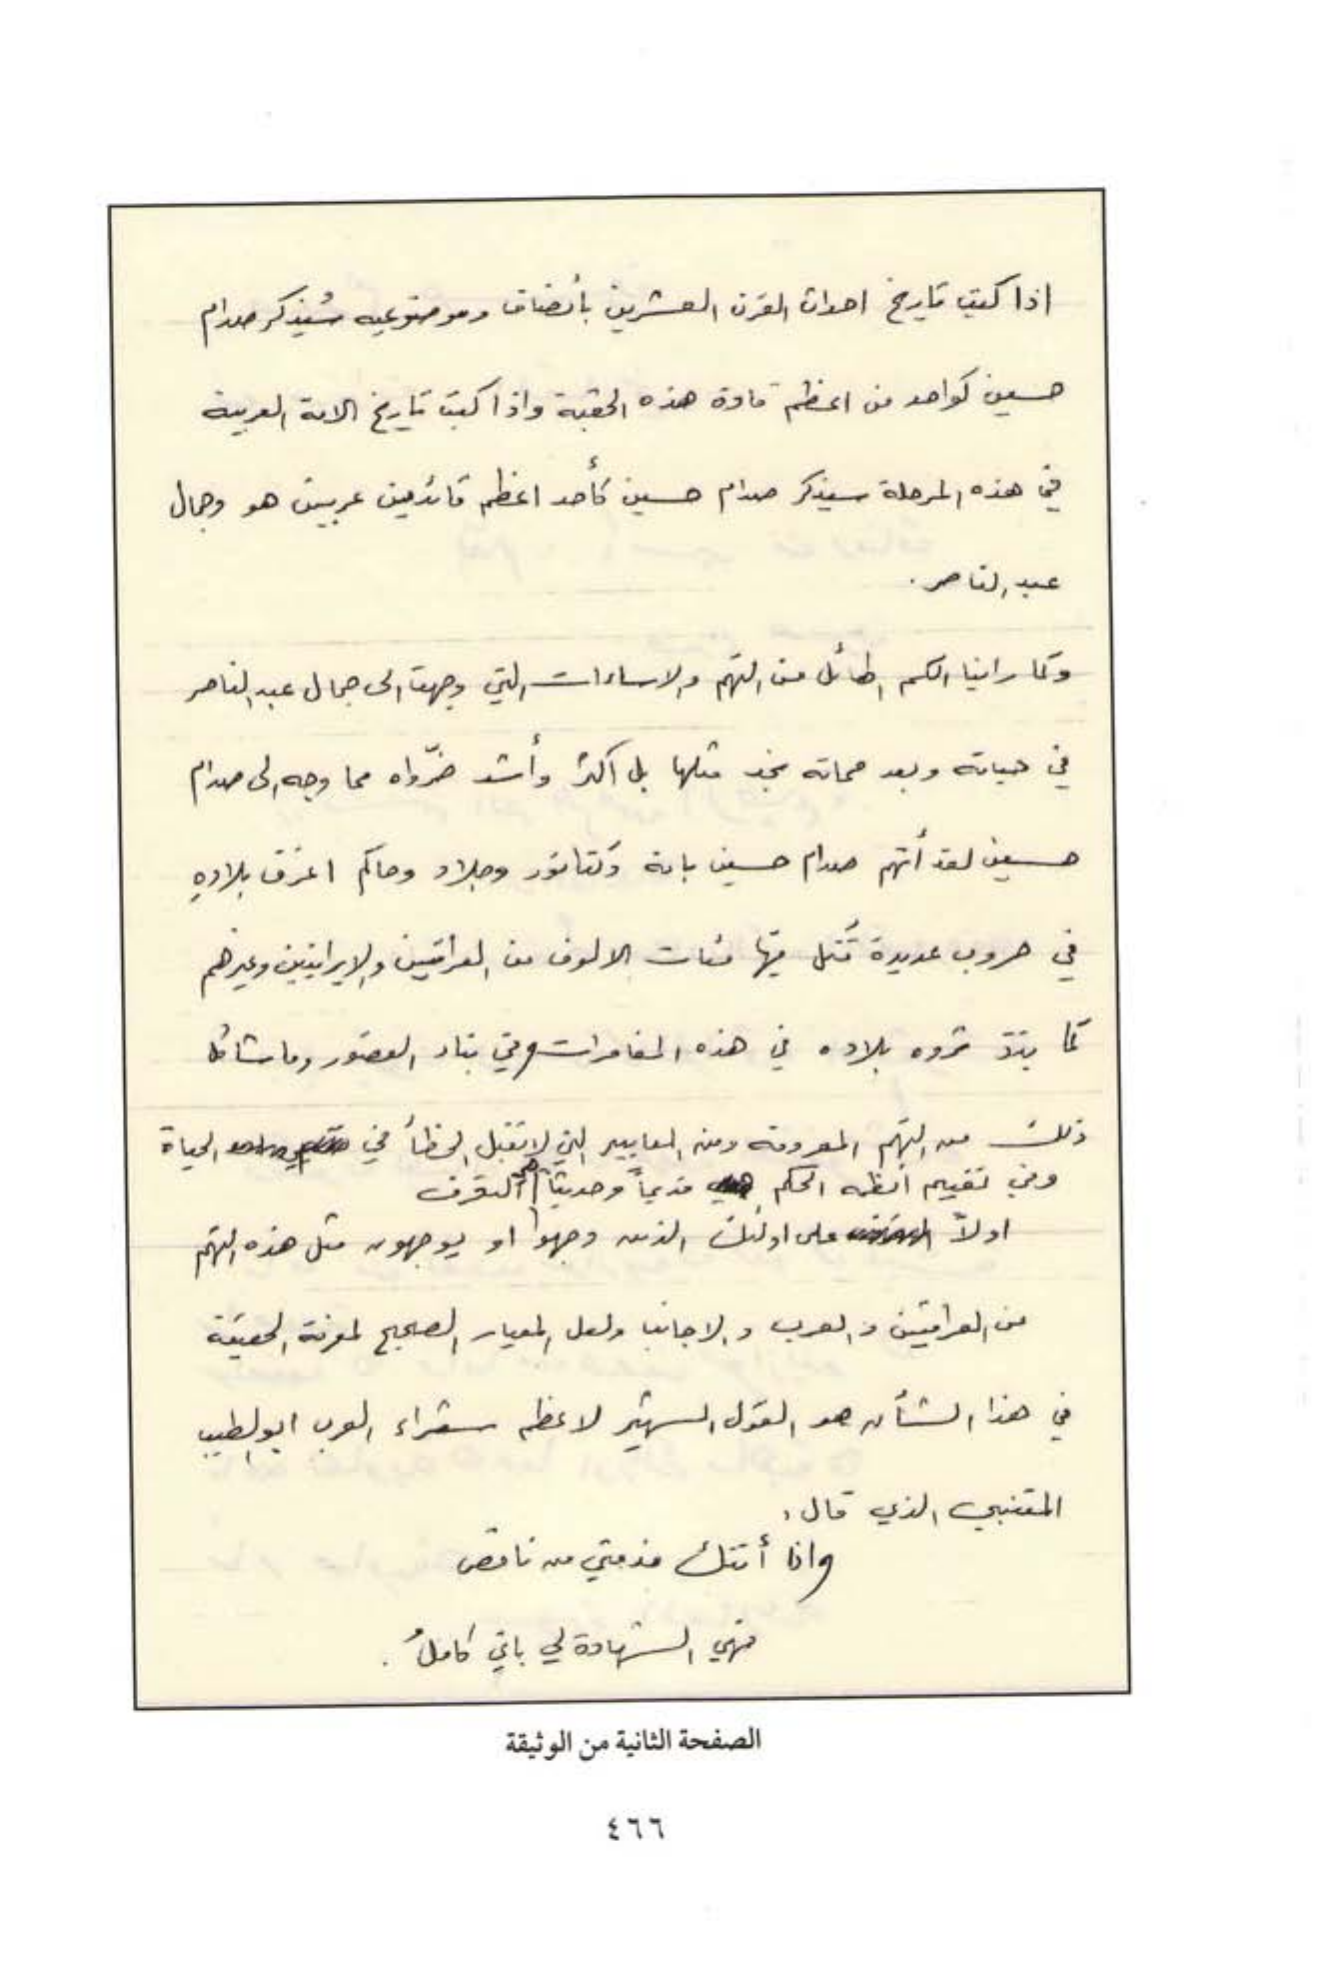 اذا كتب تاريخ احداث القرن العشرين بأنصاف وموضوعيه سُيذكر صدام
حسين كواحد من اعظم قادة هذه الحقبة واذا كتب تاريخ الامة العربية
في هذه المرحلة سيذكر صدام حسين كأحد اعظم قائدين عربيين هو وجمال
عبد الناصر .
وكما راينا الكم الهائل من التهم والاساءات التي وجهت الى جمال عبد الناصر
في حياته وبعد مماته نجد مثلها بل اكثر وأشد ضرّواه مما وجه الى صدام
حسين لقد أتهم صدام حسين بانه دكتاتور وجلاد وحاكم اغرق بلاده
في حروب عديدة قُتل فيها مئات الالوف من العراقيين والايرانيين وغيرهم
كما بدّد ثروه بلاده في هذه المغامرات وفي بناء القصور وما شاكل
ذلك من التهم المعروفه ومن المعايير التي لا تقبل الخطأ في الحياة
وفي تقييم انظمه الحكم قديماً وحديثاً هي التعرف
اولاً على اولئك الذين وجهوا او يوجهون مثل هذه التهم
من العراقيين والعرب والاجانب ولعل المعيار الصحيح لمعرفة الحقيقة
في هذا الشأن هو القول الشهير لاعظم شعراء العرب ابو الطيب
المتنبي الذي قال ،
واذا أتتك مذمتي من ناقص
فهي الشهادة لي باني كاملُ .
الصفحة الثانية من الوثيقة
٤٦٦